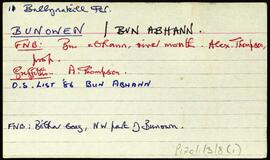 18 Ballynakill Par.
BUNOWEN / BUN ABHANN.
FNB: Bun abhann, river mouth. Alex. Thompson,
prop.
Griffith: A. Thompson.
O.S. LIST '86 BUN ABHANN
FNB: Bithar boy, NW part of Bunown.
P120/1/3/8(i)